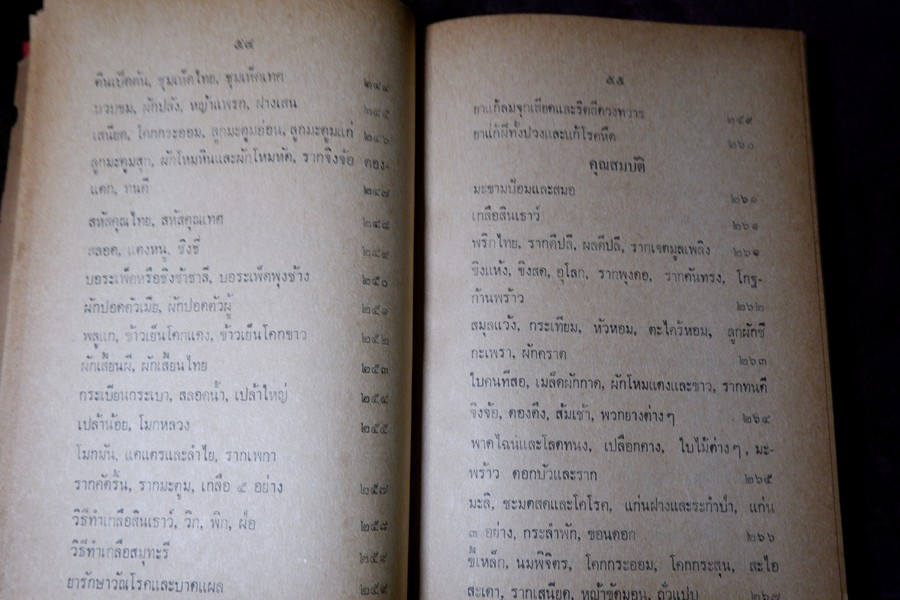 ๕๔
ตีนเป็ดต้น, ชุมเห็ดไทย, ชุมเห็ดเทศ ๒๔๔
บวบขม, ผักปลัง, หญ้าแพรก, ฝางเสน ๒๔๕
เสนียด, โคกกระออม, ลูกมะตูมอ่อน, ลูกมะตูมแก่ ๒๔๖
ลูกมะตูมสุก, ผักโหมหินและผักโหมหัด, รากจิงจ้อ ตอง-
แตก, ทนดี ๒๔๗
สหัสคุณไทย, สหัสคุณเทศ ๒๔๘
สลอด, แตงหนู, ชิงชี่ ๒๔๙
บอระเพ็ดหรือชิงช้าชาลี, บอระเพ็ดพุงช้าง ๒๕๐
ผักปอดตัวเมีย, ผักปอดตัวผู้ ๒๕๑
พลูแก, ข้าวเย็นโคกแดง, ข้าวเย็นโคกขาว ๒๕๒
ผักเสี้ยนผี, ผักเสี้ยนไทย ๒๕๓
กระเบียนกระเบา, สลอดน้ำ, เปล้าใหญ่ ๒๕๔
เปล้าน้อย, โมกหลวง ๒๕๕
โมกมัน, แคแตรและลำไย, รากเพกา
รากคัดริ้น, รากมะตูม, เกลือ ๕ อย่าง ๒๕๗
วิธีทำเกลือสินเธาว์, วิก, พิก, ฝ่อ ๒๕๘
วิธีทำเกลือสมุทะรี ๒๕๙
ยารักษาวัณโรคและบาดแผล ๒๕๙
๕๕
ยาแก้ลมจุกเสียดและริดสีดวงทวาร ๒๕๙
ยาแก้ฝีทั้งปวงและแก้โรคหืด ๒๖๐
คุณสมบัติ
มะขามป้อมและสมอ ๒๖๑
เกลือสินเธาว์ ๒๖๑
พริกไทย, รากดีปลี, ผลดีปลี, รากเจตมูลเพลิง ๒๖๑
ขิงแห้ง, ขิงสด, อุโลก, รากพุงดอ, รากคันทรง, โกฐ-
ก้านพร้าว ๒๖๒
สมุลแว้ง, กระเทียม, หัวหอม, ตะไคร้หอม, ลูกผักชี
กะเพรา, ผักคราด ๒๖๓
ใบคนทีสอ, เมล็ดผักกาด, ผักโหมแดงและขาว, รากทนดี
จิงจ้อ, ดองดึง, ส้มเช้า, พวกยางต่างๆ ๒๖๔
พาดไฉนและโลดทนง, เปลือกคาง, ใบไม้ต่างๆ, มะ-
พร้าว ดอกบัวและราก ๒๖๕
มะลิ, ชะมดสดและโคโรค, แก่นฝางและระกำป่า, แก่น
๓ อย่าง, กระลำพัก, ขอนดอก ๒๖๖
ขี้เหล็ก, นมพิจิตร, โคกกระออม, โคกกระสุน, สะไอ
สะเดา, รากเสนียด, หญ้าขัดมอน, ถั่วแปบ ๒๖๗